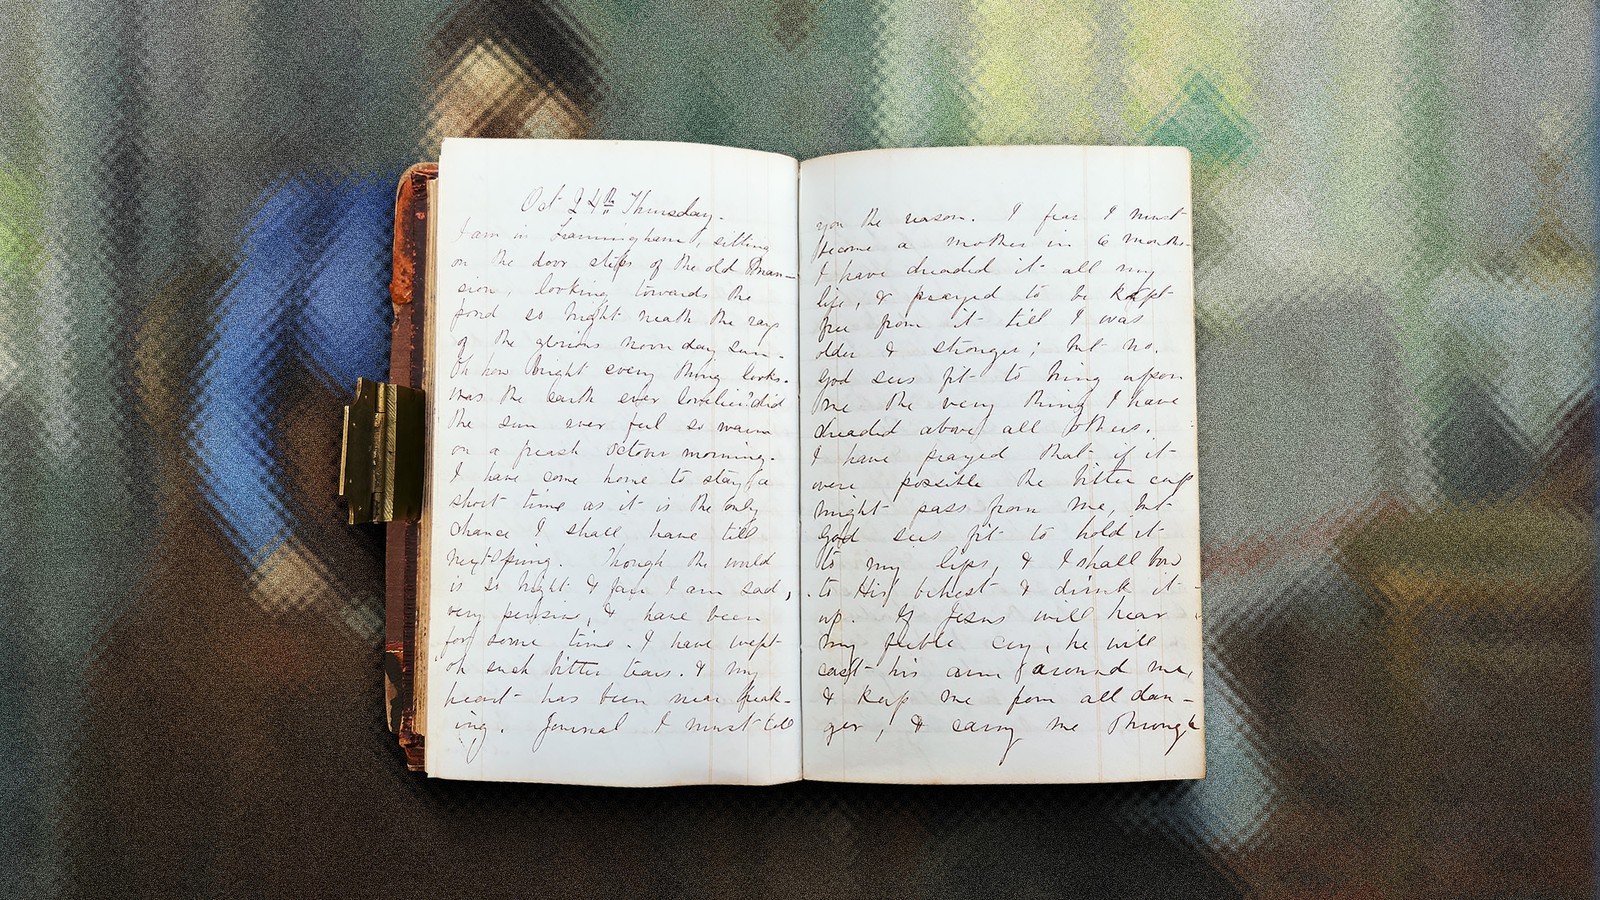 Oct 24th Thursday.
I am in Framingham, sitting
on the door steps of the old Man-
sion, looking towards the
pond so bright neath the rays
of the glorious noon day sun.
Oh how bright every thing looks.
Was the earth ever lovelier? did
the sun ever feel so warm
on a fresh October morning.
I have come home to stay a
short time as it is the only
chance I shall have till
next Spring. Though the world
is so bright & fair I am sad,
very pensive, & have been
for some time. I have wept
oh such bitter tears. & my
heart has been near break-
ing. Journal I must tell
you the reason. I fear I must
become a mother in 6 months
I have dreaded it all my
life, & prayed to be kept
free from it till I was
older & stronger; but no.
God sees fit to bring upon
me the very thing I have
dreaded above all others.
I have prayed that if it
were possible the bitter cup
might pass from me, but
God sees fit to hold it
to my lips, & I shall bow
to His behest & drink it
up. If Jesus will hear
my feeble cry, he will
cast his arm around me,
& keep me from all dan-
ger, & carry me through